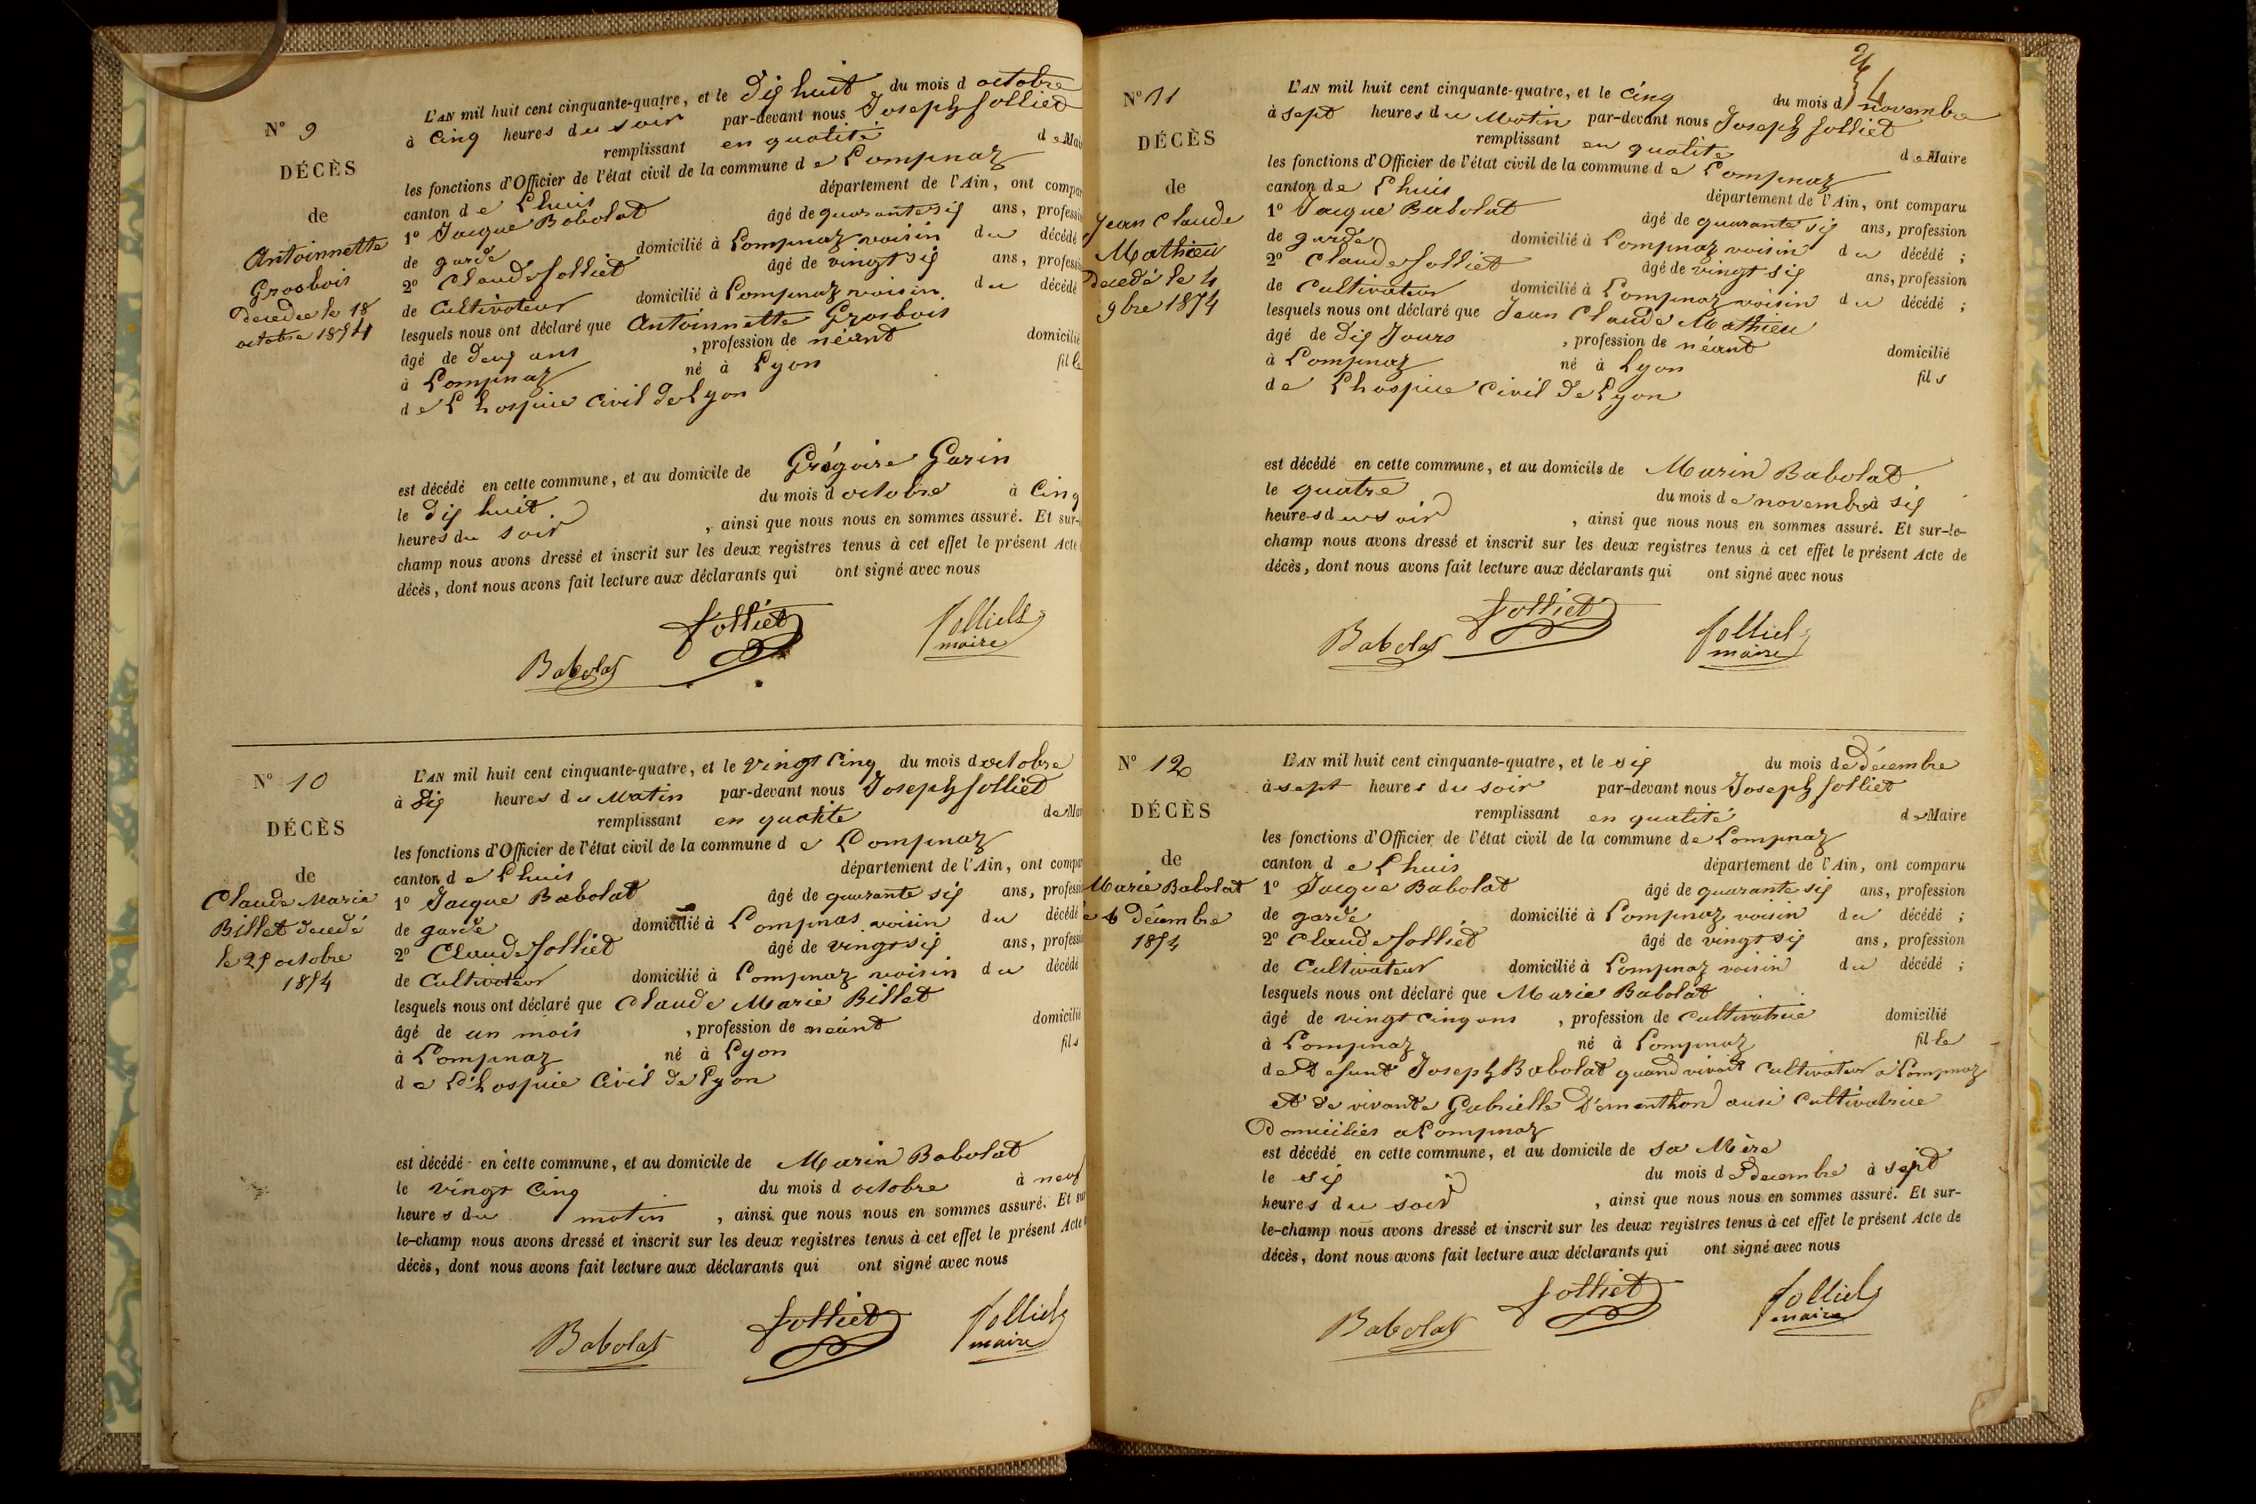 N° 9
DÉCÈS
de
Antoinnette
Grosbois
decedee le 18
octobre 1854
L'AN mil huit cent cinquante-quatre, et le dix huit du mois d octobre
à Cinq heures du soir par-devant nous Joseph Jolliet
remplissant en qualité de Mai
les fonctions d'Officier de l'état civil de la commune de Lompnaz
canton de Lhuis département de l'Ain, ont compar
1° Jacque Babolat âgé de quarante six ans, professi
de garde domicilié à Lompnaz voisin du décédé
2° Claude Jolliet âgé de vingt six ans, professi
de Cultivateur domicilié à Lompnaz voisin du décédé
lesquels nous ont déclaré que Antoinnette Grosbois
âgé de deux ans , profession de néant domicilié
à Lompnaz né à Lyon fille
de L'hospice Civil de Lyon
est décédé en cette commune, et au domicile de Grégoire Garin
le dix huit du mois d octobre à Cinq
heures du soir , ainsi que nous nous en sommes assuré. Et sur-
champ nous avons dressé et inscrit sur les deux registres tenus à cet effet le présent Acte
décès, dont nous avons fait lecture aux déclarants qui ont signé avec nous
Babolat Jolliet Jolliet
maire
N° 10
DÉCÈS
de
Claude Marie
Billet decedé
le 25 octobre
1854
L'AN mil huit cent cinquante-quatre, et le vingt Cinq du mois d octobre
à Dix heures du Matin par-devant nous Joseph Jolliet
remplissant en qualité de Mai
les fonctions d'Officier de l'état civil de la commune de Lompnaz
canton de Lhuis département de l'Ain, ont compa
1° Jacque Babolat âgé de quarante six ans, profess
de garde domicilié à Lompnas voisin du décédé
2° Claude Jolliet âgé de vingt six ans, profess
de Cultivateur domicilié à Lompnaz voisin du décédé
lesquels nous ont déclaré que Claude Marie Billet
âgé de un mois , profession de néant domicilié
à Lompnaz né à Lyon fils
de L'hospice Civil de Lyon
est décédé en cette commune, et au domicile de Marin Babolat
le vingt Cinq du mois d octobre à neuf
heures du matin , ainsi que nous nous en sommes assuré. Et sur
le-champ nous avons dressé et inscrit sur les deux registres tenus à cet effet le présent Acte
décès, dont nous avons fait lecture aux déclarants qui ont signé avec nous
Babolat Jolliet Jolliet
maire
N° 11
DÉCÈS
de
Jean Claude
Mathieu
Decedé le 4
9bre 1854
L'AN mil huit cent cinquante-quatre, et le Cinq du mois d novembre
à sept heures du Matin par-devant nous Joseph Jolliet
remplissant en qualité de Maire
les fonctions d'Officier de l'état civil de la commune de Lompnaz
canton de Lhuis département de l'Ain, ont comparu
1° Jacque Babolat âgé de quarante six ans, profession
de garde domicilié à Lompnaz voisin du décédé ;
2° Claude Jolliet âgé de vingt six ans, profession
de Cultivateur domicilié à Lompnaz voisin du décédé ;
lesquels nous ont déclaré que Jean Claude Mathieu
âgé de dix Jours , profession de néant domicilié
à Lompnaz né à Lyon fils
de Lhospice Civil de Lyon
est décédé en cette commune, et au domicile de Marin Babolat
le quatre du mois de novembre à six
heures du soir , ainsi que nous nous en sommes assuré. Et sur-le-
champ nous avons dressé et inscrit sur les deux registres tenus à cet effet le présent Acte de
décès, dont nous avons fait lecture aux déclarants qui ont signé avec nous
Babolat Jolliet Jolliet
maire
N° 12
DÉCÈS
de
Marie Babolat
le 6 décembre
1854
L'AN mil huit cent cinquante-quatre, et le six du mois de décembre
à sept heures du soir par-devant nous Joseph Jolliet
remplissant en qualité de Maire
les fonctions d'Officier de l'état civil de la commune de Lompnaz
canton de Lhuis département de l'Ain, ont comparu
1° Jacque Babolat âgé de quarante six ans, profession
de garde domicilié à Lompnaz voisin du décédé ;
2° Claude Jolliet âgé de vingt six ans, profession
de Cultivateur domicilié à Lompnaz voisin du décédé ;
lesquels nous ont déclaré que Marie Babolat
âgé de vingt cinq ans , profession de Cultivatrice domicilié
à Lompnaz né à Lompnaz fille
de Defunt Joseph Babolat quand vivait Cultivateur à Lompnaz
et de vivante Gabrielle Demonthon ausi Cultivatrice
Domiciliés a Lompnaz
est décédé en cette commune, et au domicile de sa Mère
le six du mois de Decembre à sept
heures du soir , ainsi que nous nous en sommes assuré. Et sur-
le-champ nous avons dressé et inscrit sur les deux registres tenus à cet effet le présent Acte de
décès, dont nous avons fait lecture aux déclarants qui ont signé avec nous
Babolat Jolliet Jolliet
maire